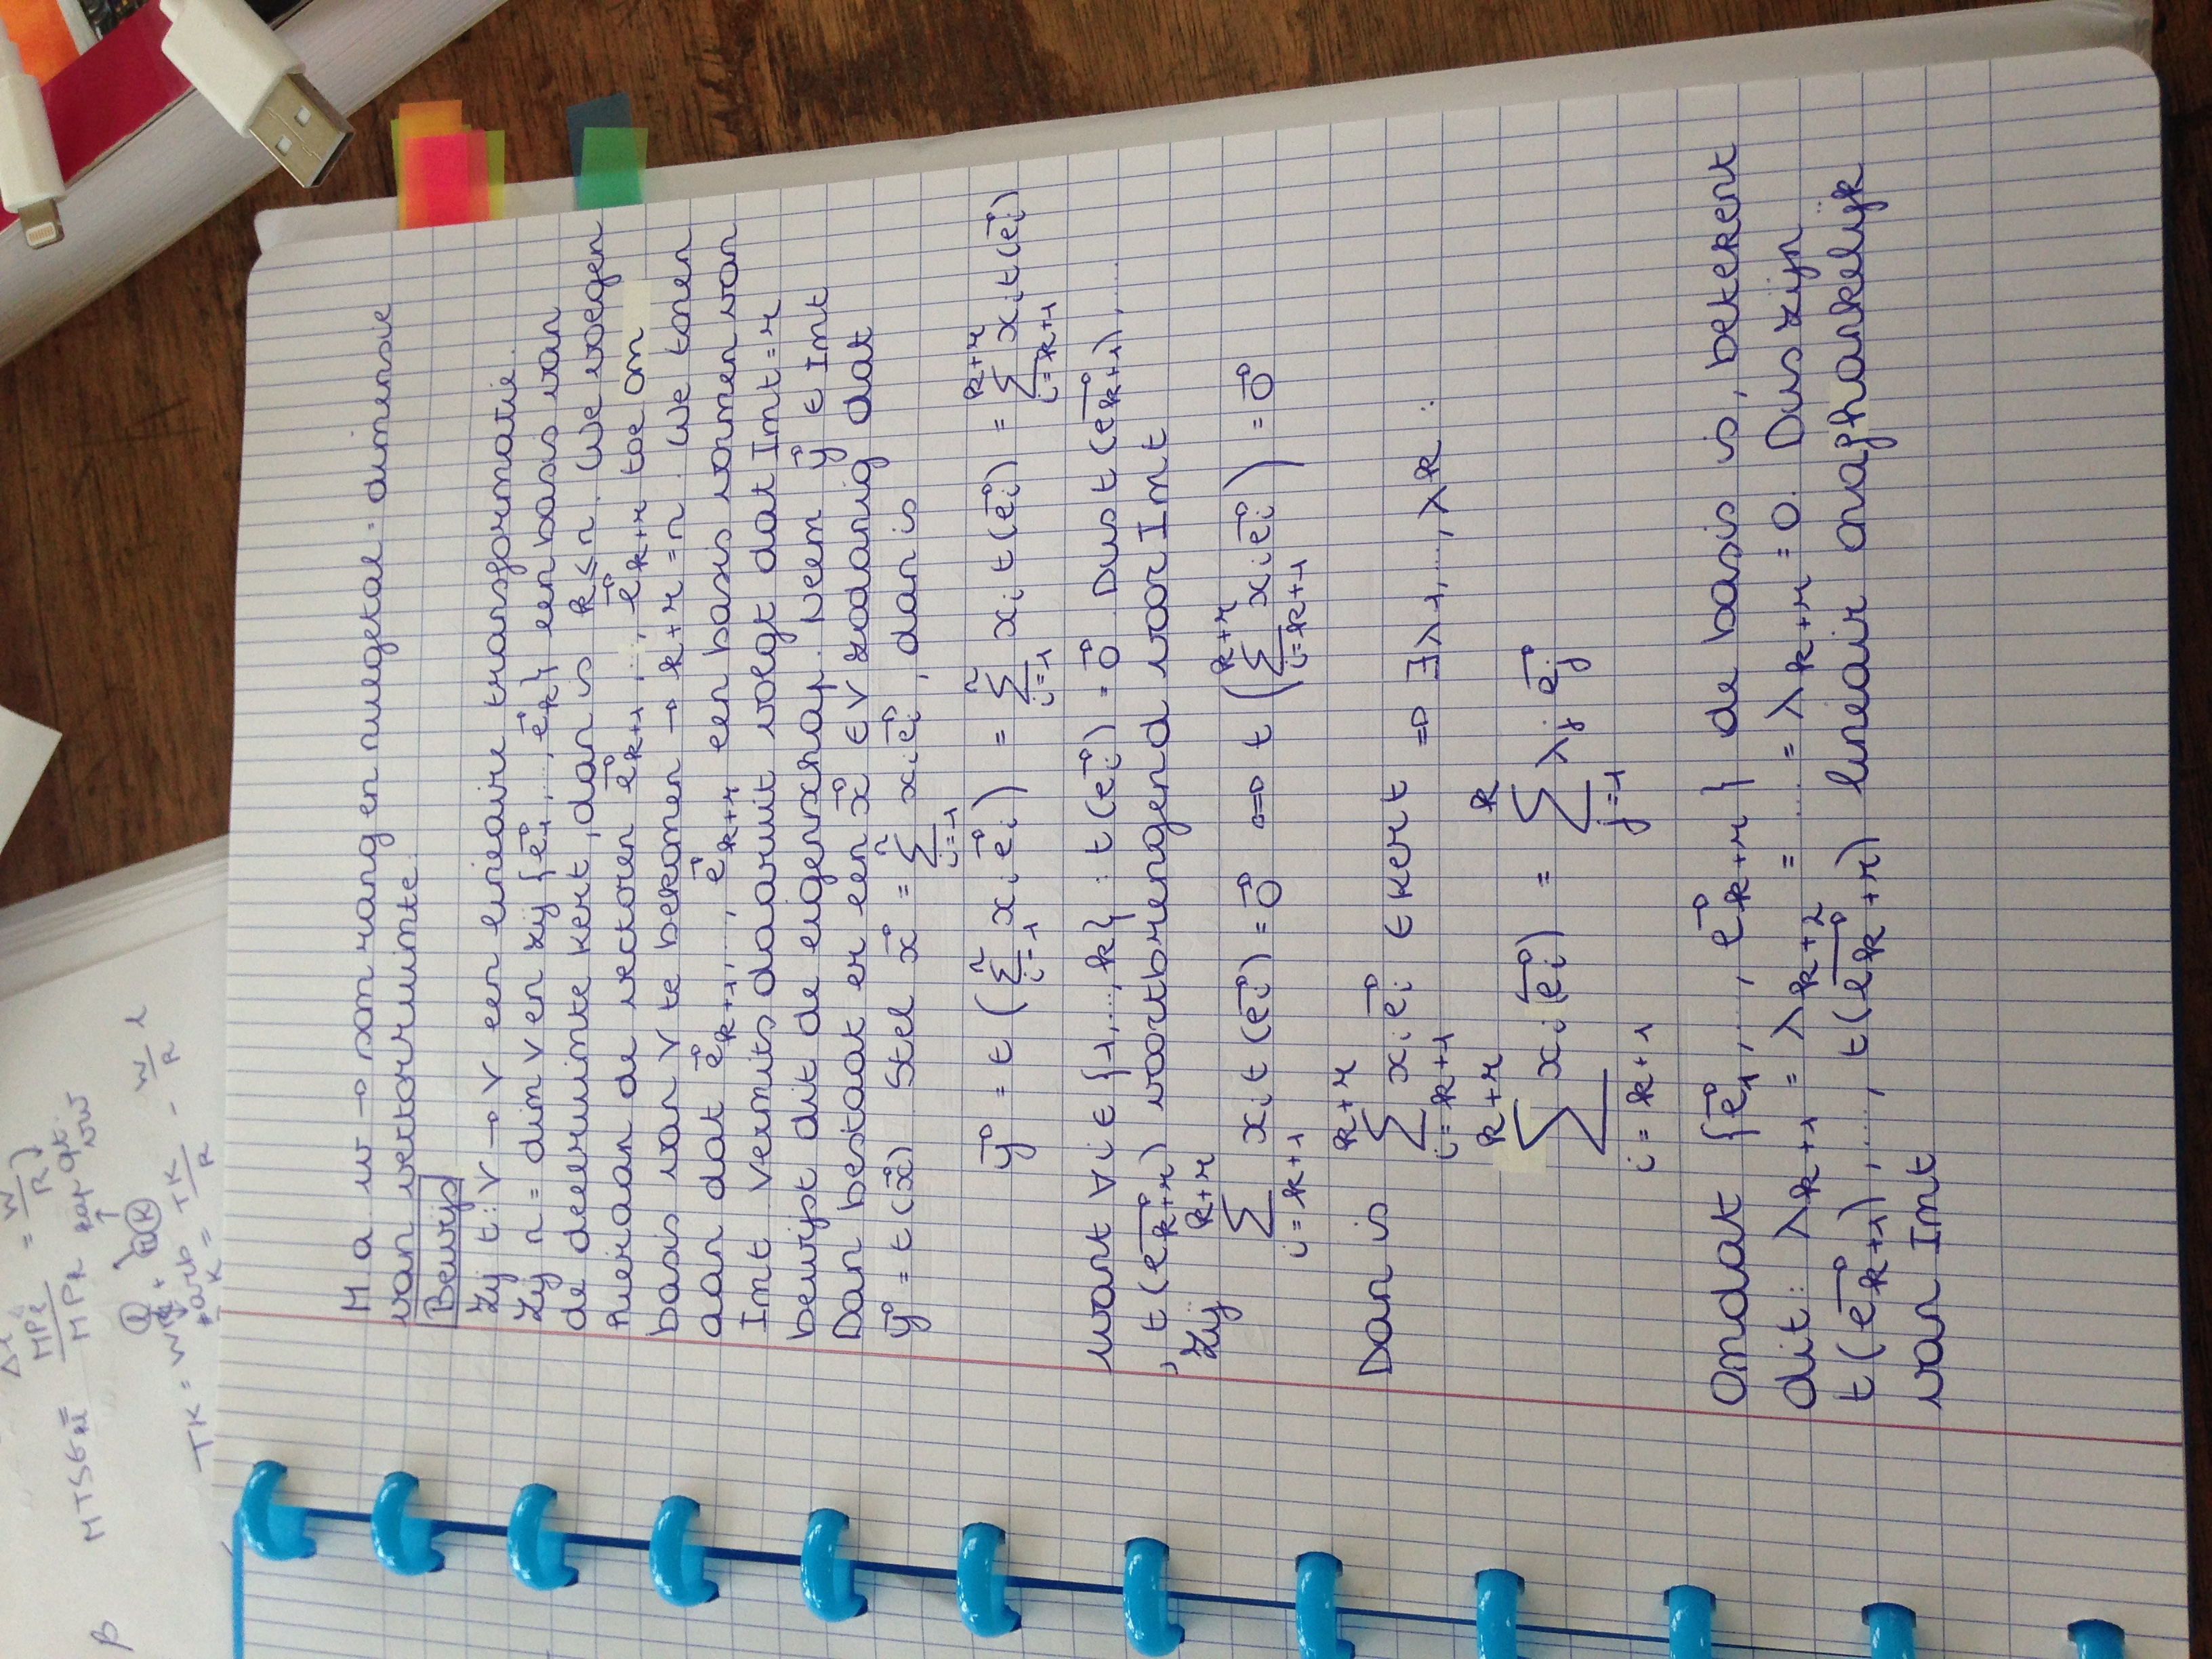 M a w → som rang en nulgetal = dimensie
van vectorruimte.
Bewijs
Zij t : V → V een lineaire transformatie.
Zij n = dim V en zij {e⃗₁, ..., e⃗ₖ} een basis van
de deelruimte ker t, dan is k ≤ n. We voegen
hieraan de vectoren e⃗ₖ₊₁, ..., e⃗ₖ₊ᵣ toe om
basis van V te bekomen → k+r = n. We tonen
aan dat e⃗ₖ₊₁, ..., e⃗ₖ₊ᵣ een basis vormen van
Im t. Vermits daaruit volgt dat Im t = r
bewijst dit de eigenschap. Neem y⃗ ∈ Im t
Dan bestaat er een x⃗ ∈ V zodanig dat
y⃗ = t(x⃗). Stel x⃗ = ∑ᵢ₌₁ⁿ xᵢe⃗ᵢ, dan is
y⃗ = t(∑ᵢ₌₁ⁿ xᵢe⃗ᵢ) = ∑ᵢ₌₁ⁿ xᵢt(e⃗ᵢ) = ∑ᵢ₌ₖ₊₁ᵏ⁺ʳ xᵢt(e⃗ᵢ)
want ∀i ∈ {1,...,k} : t(e⃗ᵢ) = 0⃗. Dus t(e⃗ₖ₊₁), ...
, t(e⃗ₖ₊ᵣ) voortbrengend voor Im t
Zij ∑ᵢ₌ₖ₊₁ᵏ⁺ʳ xᵢt(e⃗ᵢ) = 0⃗ ⇔ t(∑ᵢ₌ₖ₊₁ᵏ⁺ʳ xᵢe⃗ᵢ) = 0⃗
Dan is ∑ᵢ₌ₖ₊₁ᵏ⁺ʳ xᵢe⃗ᵢ ∈ ker t ⇒ ∃λ₁, ..., λₖ :
∑ᵢ₌ₖ₊₁ᵏ⁺ʳ xᵢ(e⃗ᵢ) = ∑ⱼ₌₁ᵏ λⱼe⃗ⱼ
Omdat {e⃗₁, ..., e⃗ₖ₊ᵣ} de basis is, betekent
dit: λₖ₊₁ = λₖ₊₂ = ... = λₖ₊ᵣ = 0. Dus zijn
t(e⃗ₖ₊₁), ..., t(e⃗ₖ₊ᵣ) lineair onafhankelijk
van Im t